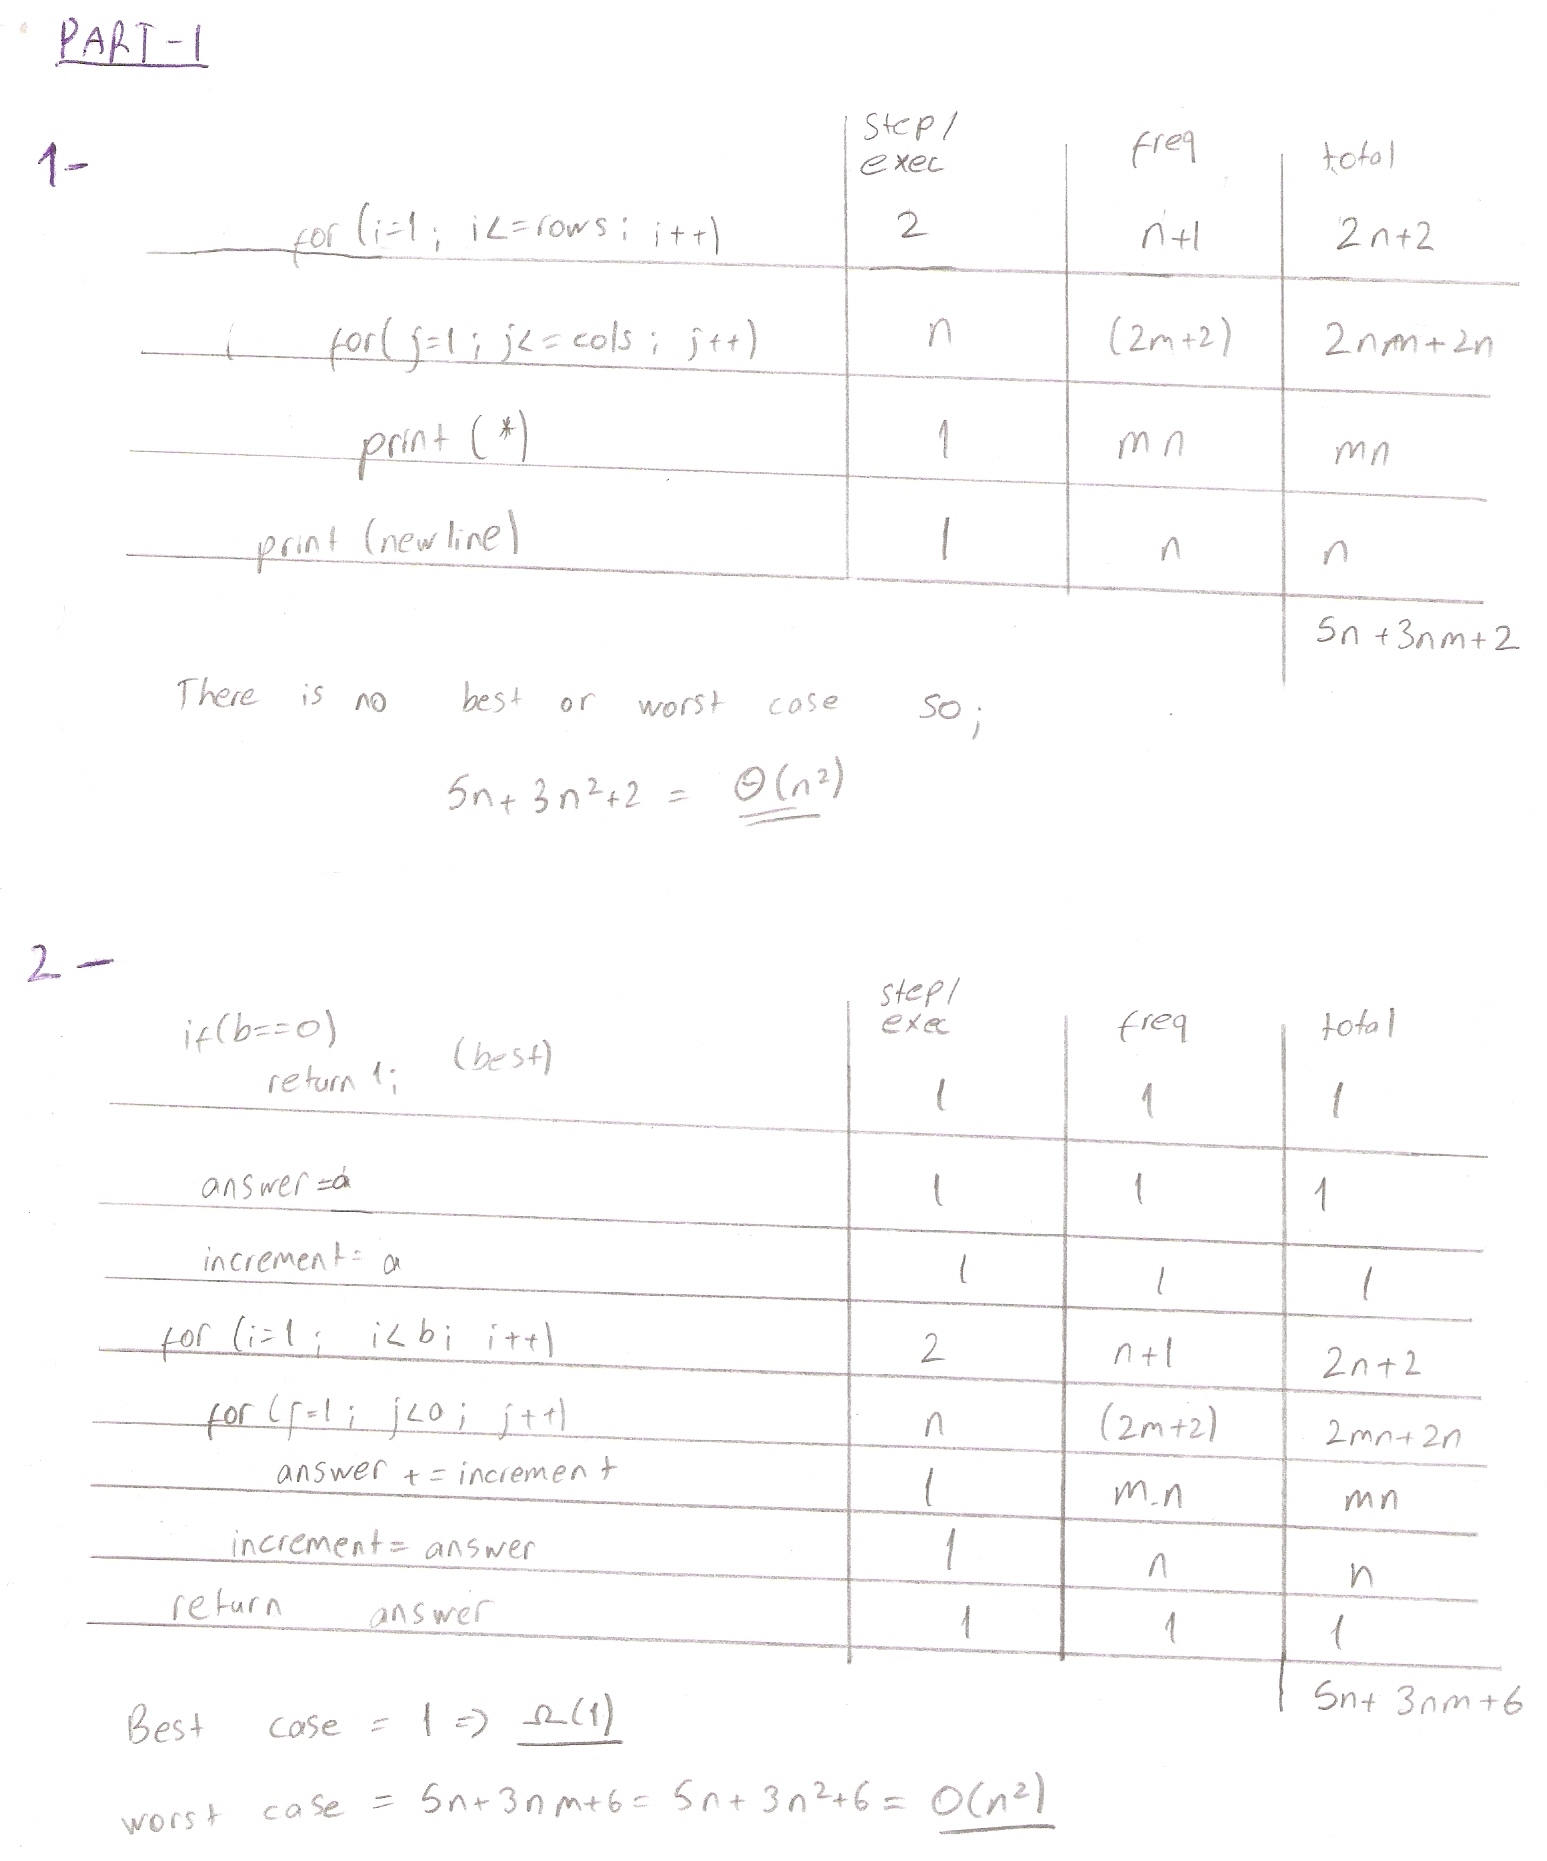 PART-1
1-
step/ exec freq total
for (i=1; i<=rows; i++) 2 n+1 2n+2
for(j=1; j<=cols; j++) n (2m+2) 2nm+2n
print (*) 1 mn mn
print (newline) 1 n n
5n+3nm+2
There is no best or worst case so;
5n+3n²+2 = Θ(n²)
2-
step/ exec freq total
if(b==0)
return 1; (best) 1 1 1
answer=a 1 1 1
increment=a 1 1 1
for (i=1; i<b; i++) 2 n+1 2n+2
for (j=1; j<a; j++) n (2m+2) 2mn+2n
answer += increment 1 m.n mn
increment= answer 1 n n
return answer 1 1 1
5n+3nm+6
Best case = 1 => Ω(1)
worst case = 5n+3nm+6= 5n+3n²+6= O(n²)